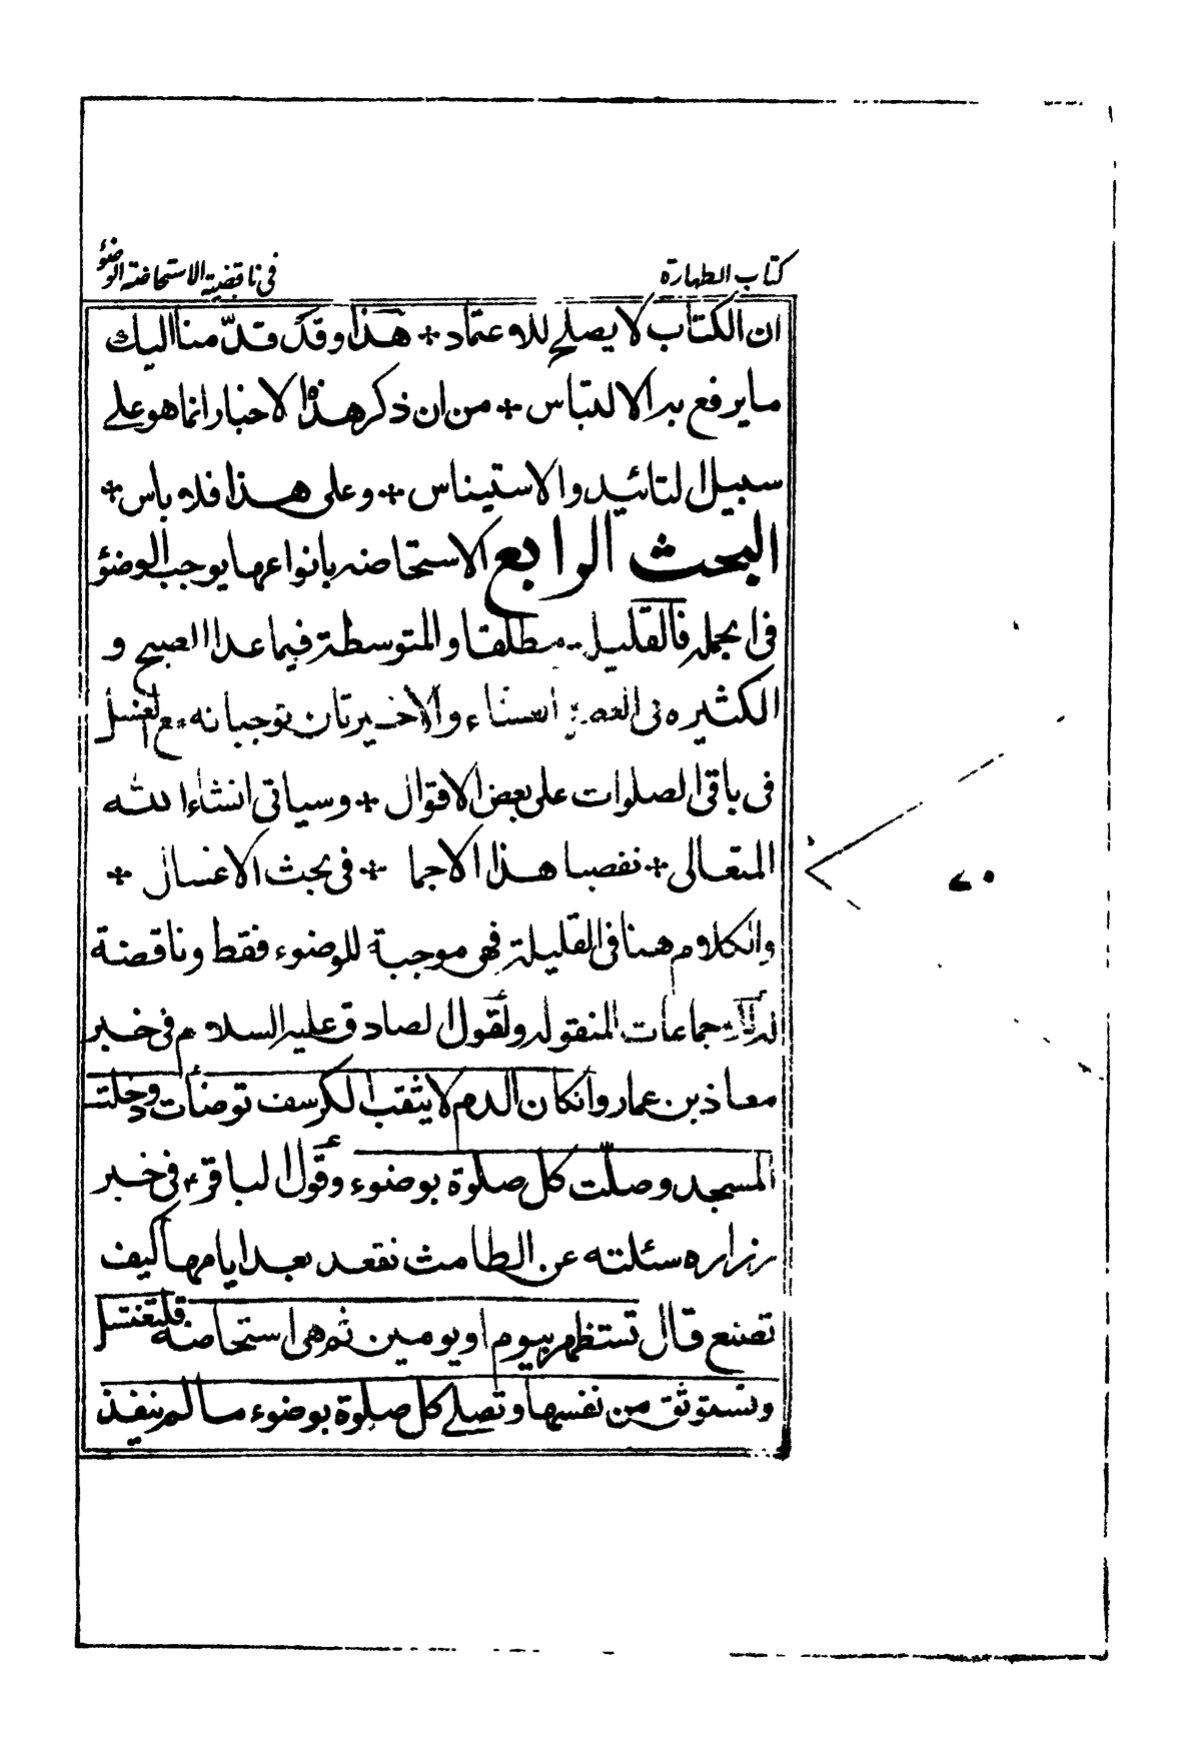 كتاب الطهارة
فى ناقضية الاستحاضة الوضوٴ
ان الكتاب لا يصلح للاعتماد + هذا وقد قدّمنا اليك
ما يرفع به الالتباس + من ان ذكر هذه الاخبار انما هو على
سبيل التائيد والاستيناس + وعلى هذا فلا باس +
البحث الرابع الاستحاضه بانواعها يوجب الوضوٴ
فى الجمله فالقليلة مطلقا والمتوسطة فيما عدا الصبح و
الكثيره فى العصر والعشاء والاخيرتان توجبانه مع الغسل
فى باقى الصلوات على بعض الاقوال + وسياتى انشاء الله
المتعالى + تفصيل هذا الاجمال + فى بحث الاغسال +
والكلام هنا فى القليلة فهى موجبة للوضوء فقط وناقضة
جماعات المنقوله ولقول الصادق عليه السلام فى خبر
معاذ بن عمار وانكان الدم لا يثقب الكرسف توضأت ودخلت
المسجد وصلّت كل صلوة بوضوء وقول الباقرؑ فى خبر
زراره سئلته عن الطامث تقعد بعد ايامها كيف
تصنع قال تستظهر بيوم او يومين ثم هى استحاضة فلتغتسل
وتستوثق من نفسها وتصلى كل صلوة بوضوء ما لم ينفذ